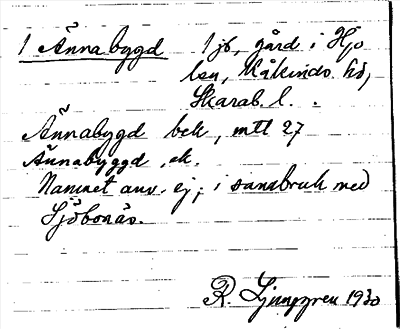 1 Ännabygd 1 jb, gård i Hjo
lsn, Kåkinds hd,
Skarab. l.
Ännabygd bek, mtl 27
Ännabyggd ek.
Namnet anv. ej; i sambruk med
Sjöbonäs.
R. Ljunggren 1930